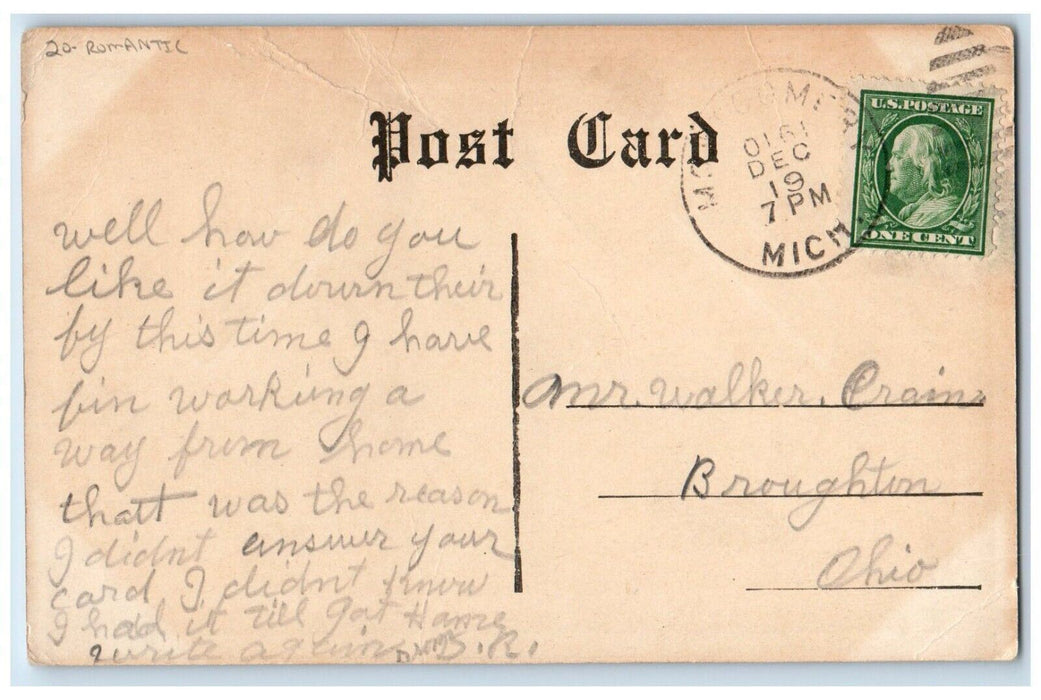 20- ROMANTIC
Post Card
MONTGOMERY
1910
DEC
19
7 PM
MICH.
U.S. POSTAGE
ONE CENT
well how do you
like it down their
by this time I have
bin working a
way from home
thatt was the reason
I didnt answer your
card, I didnt know
I had it till got Hame
write again B. R.
Mr. Walker. Crain.
Broughton
Ohio